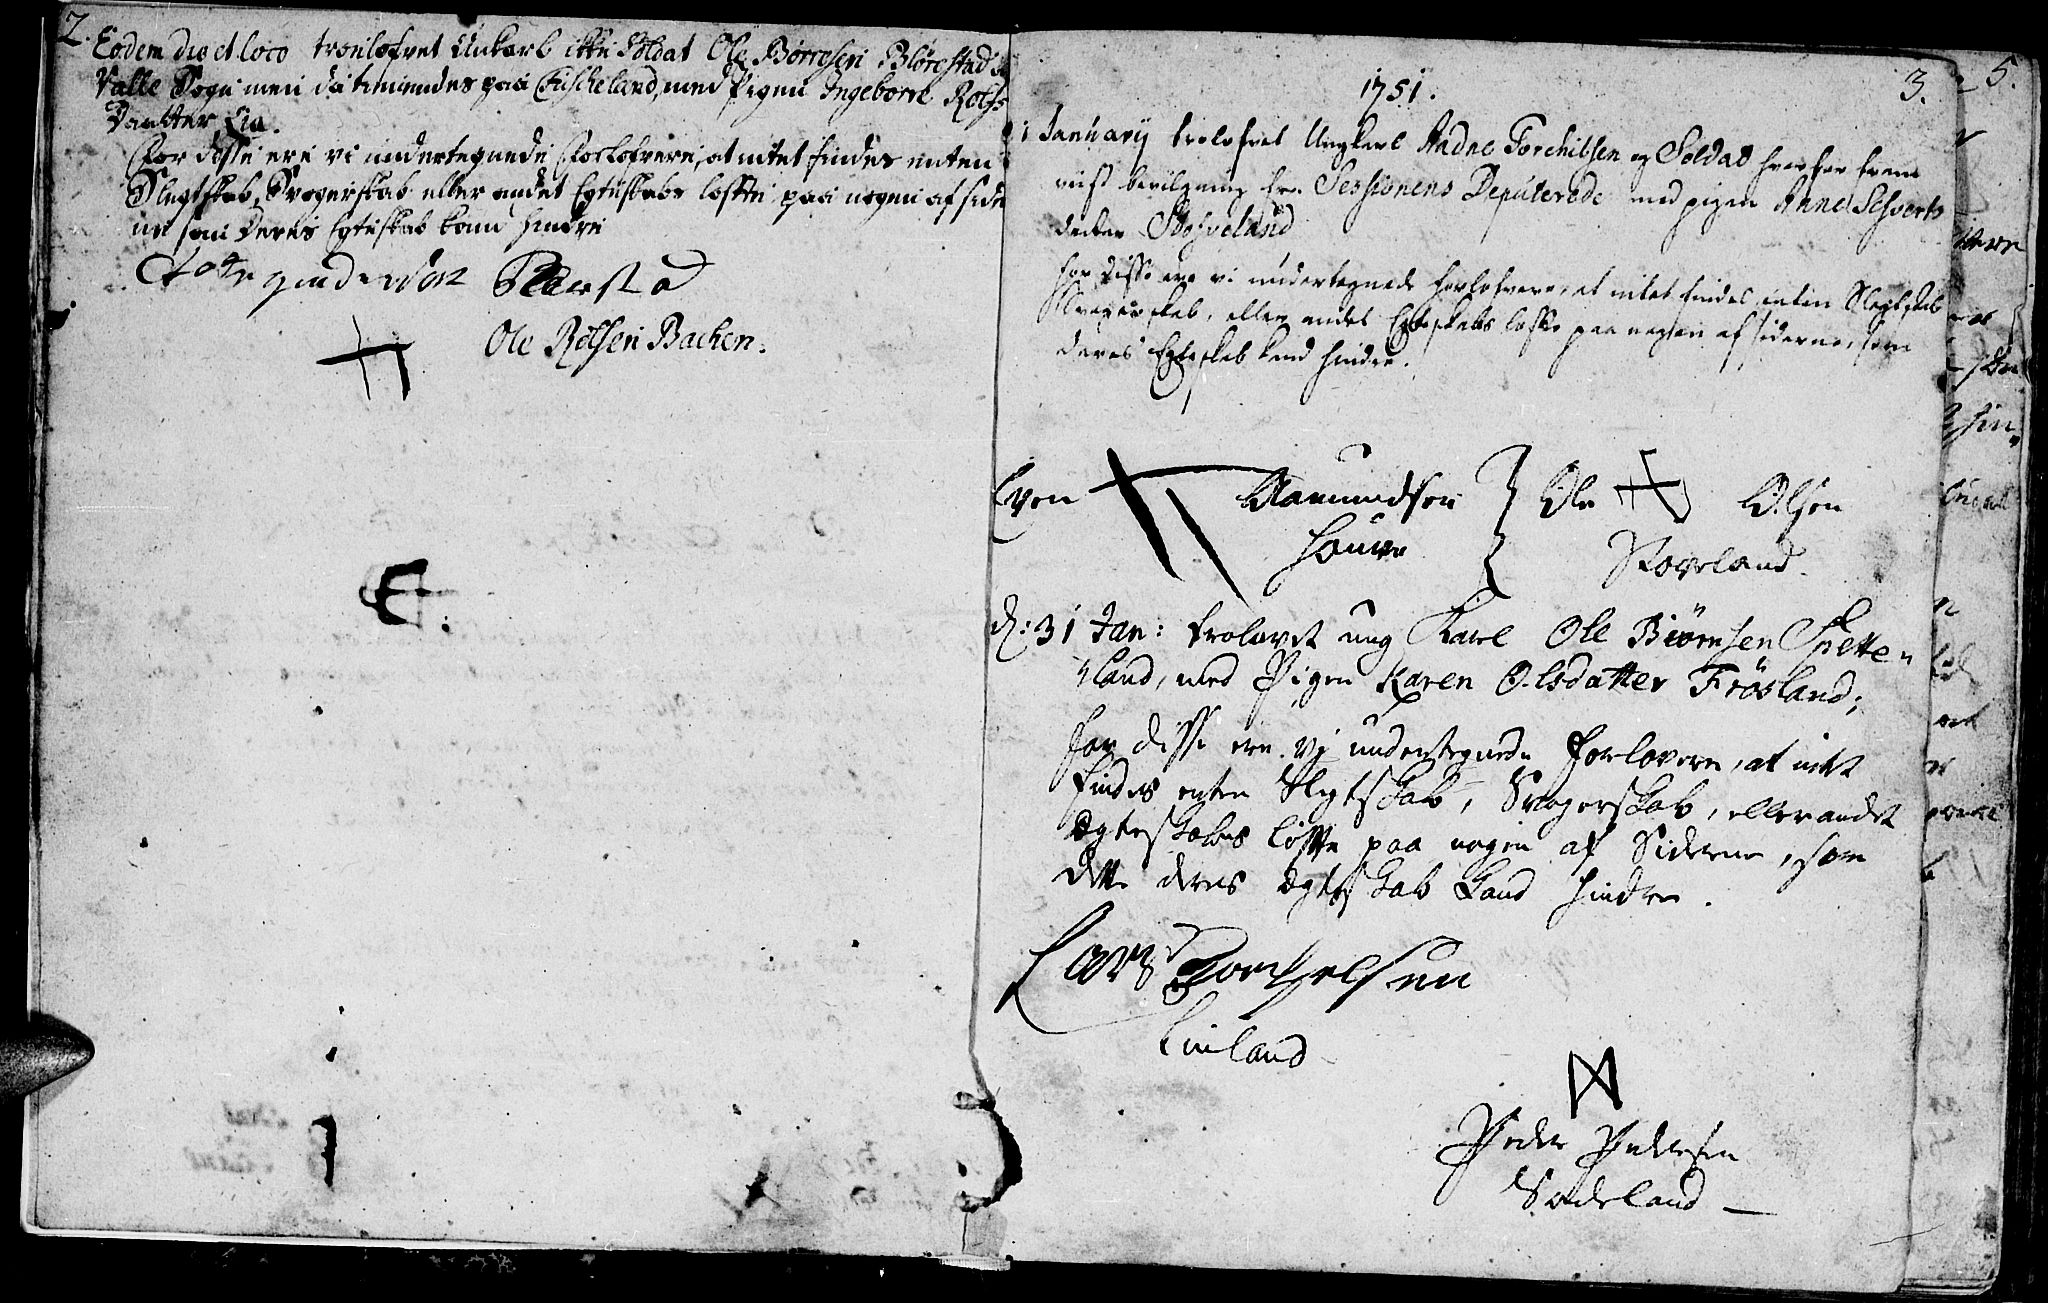 2.
Eodem die et loco troelofvet Unkarl ikke Soldat Ole Børresen Blørestad i
Valle Sogn men da tienendes paa Fuskeland, med Pigen Ingeborre Rolfs
Daatter Lia.
For disse ere vi undertegnede Forlofvere, at intet findes enten
Slegtskab, Svogerskab eller andet Egteskabs løffte paa nogen af side
ne som deres Egteskab kand hindre
Ole Rolfsen Bachen.
3.
5.
1751.
January trolofvet Ungkarl Aadne Torchilsen og Soldat hvorfor frem
viist bevilgning fra Sessionens Deputerede med pigen Anne Sifverts
datter Skofveland
for disse ere vi undertegnede forlofvere, at intet findes enten Slegtskab
Svogerskab, eller andet Egteskabs løfte paa nogen af siderne, som
deres Egteskab kand hindre.
Even Aamundsen Ole Olsen
Houve Skoveland.
d: 31 Jan: trolovet ung Karl Ole Biørnsen Spette-
land, med Pigen Karen Olsdatter Frøsland;
for disse ere vj undertegnede Forlovere, at intet
findes enten Slegtskab, Svogerskab, eller andet
Ægteskabs løfte paa nogen af Siderne, som
dette deres Ægteskab kand hindre.
Lars Torkelsen
Finland
Peder Pedersen
Sodeland